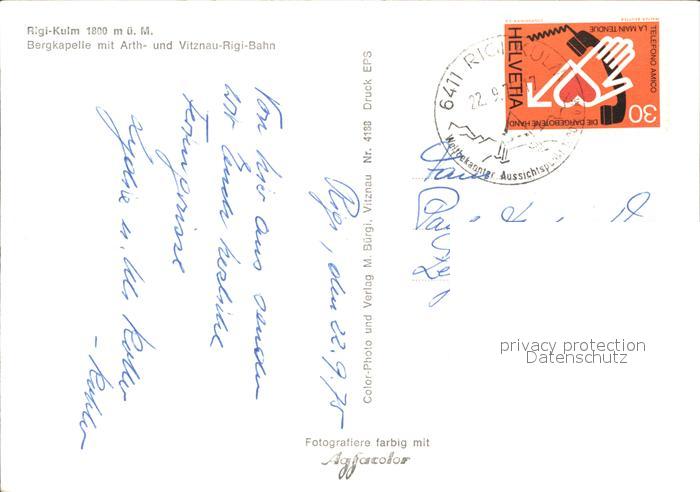 Rigi-Kulm 1800 m ü. M.
Bergkapelle mit Arth- und Vitznau-Rigi-Bahn
Rigi, den 22.9.75
Von hier aus senden
wir Euch herzliche
Feriengrüsse
Color-Photo und Verlag M. Bürgi, Vitznau Nr. 4188 Druck EPS
Fotografiere farbig mit
Agfacolor
6411 RIGI-KULM
22.9.
Weltbekannter Aussichtspunkt
HELVETIA
TELEFONO AMICO
LA MAIN TENDUE
DIE DARGEBOTENE HAND
30
privacy protection
Datenschutz